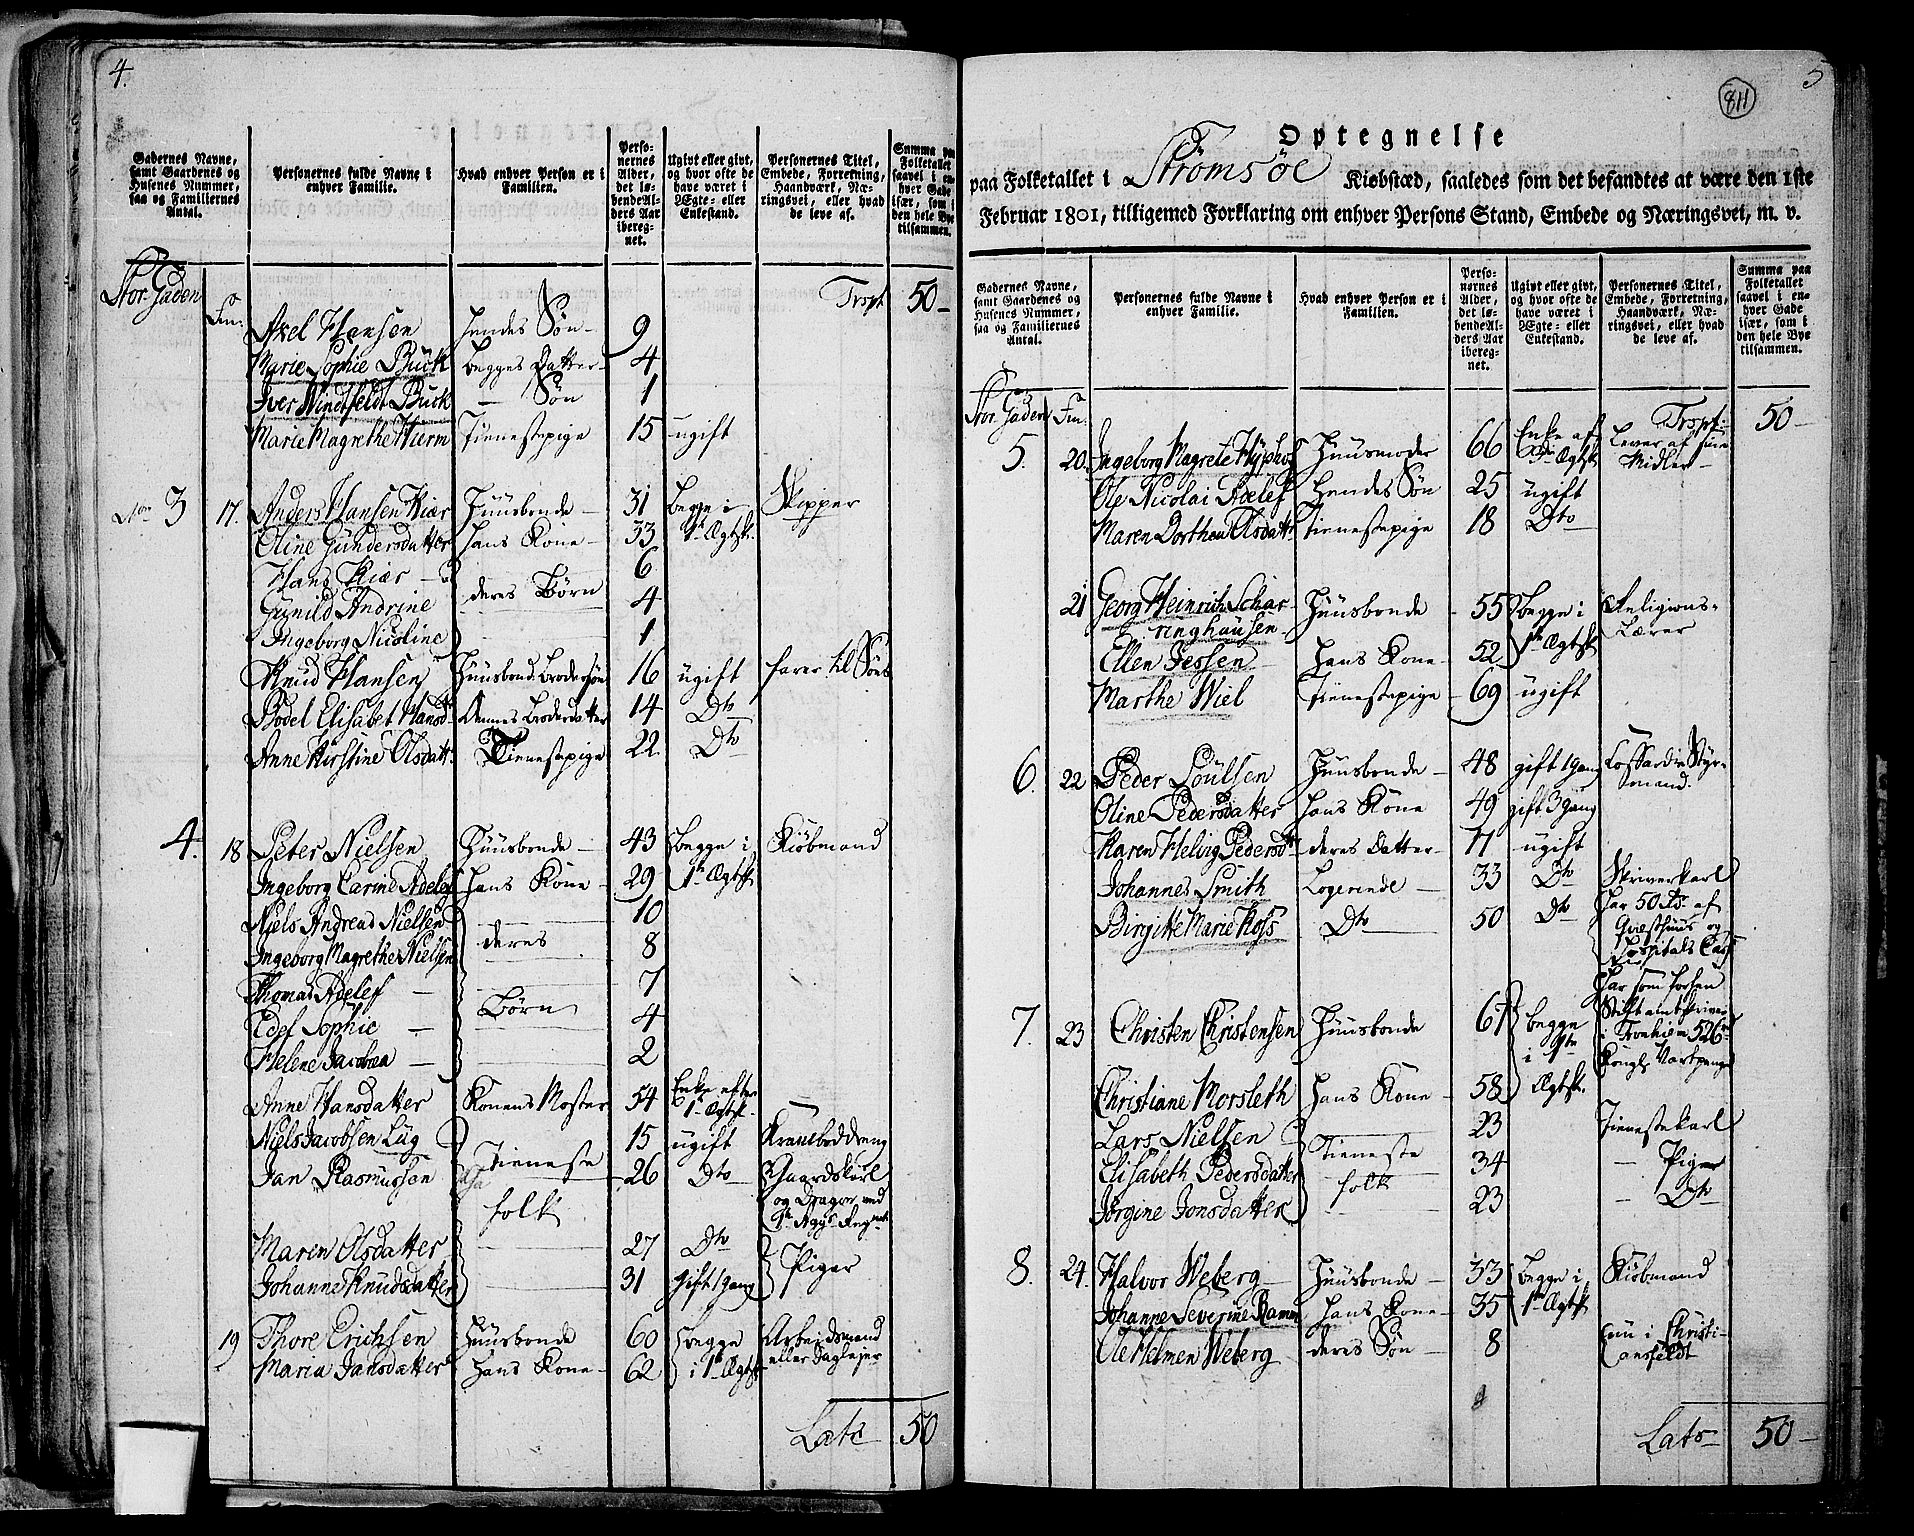 4.
Gadernes Navne, samt Gaardenes og Husenes Nummer, saa og Familiernes Antal.
Personernes fulde Navne i enhver Familie.
Hvad enhver Person er i Familien.
Personernes Alder, det løbende Alders Aar iberegnet.
Ugivt eller givt, og hvor ofte de have været i Ægte- eller Enkestand.
Personernes Titel, Embede, Forretning, Haandværk, Næringsvei, eller hvad de leve af.
Summa paa Folketallet saavel i enhver Gade især, som i den hele Bye tilsammen.
Stor-Gaden Fm: Trspt 50
Axel Hansen hendes Søn 9
Marie Sophie Buck begges Datter 4
Iver Windtfeldt Buck — Søn 1
Marie Magrethe Wurm Tienestepige 15 ugift
No 3 17. Anders Hansen Kiær Huusbonde 31 Begge i Skipper
Oline Gundersdatter hans Kone 33 1ste Ægtsk.
Hans Kiær 6
Gunild Andrine deres Børn 4
Ingeborg Nicoline 1
Knud Hansen Huusbond. Brodersøn 16 ugift farer til Søes
Bodel Elisabet Hansd. Dennes Broderdatter 14 Do
Anne Kirstine Olsdatt. Tienestepige 22 Do
4. 18 Peter Nielsen Huusbonde 43 Begge i Kiøbmand
Ingeborg Carine Adelef hans Kone 29 1ste Ægtsk
Niels Andreas Nielsen 10
Ingeborg Magrethe Nielsen deres 8
Thomas Adelef 7
Edel Sophie Børn 4
Helene Jacobea 2
Anne Hansdatter Konens Moster 54 Enke efter 1ste Ægtsk.
Niels Jacobsen Lug 15 ugift Kramboddreng
Jan Rasmussen Tieneste 26 Do Gaardskarl
folk og Dragon ved
Maren Olsdatter 27 Do
Johanne Knudsdatter 31 gift 1 gang Piger
19 Thore Erichsen Huusbonde 60 Begge Arbeidsmand
Maria Jansdatter hans Kone 62 i 1ste Ægtsk eller Daglejer
Lats 50
5
811
Optegnelse
paa Folketallet i Strømsøe Kiøbstæd, saaledes som det befandtes at være den 1ste
Februar 1801, tilligemed Forklaring om enhver Persons Stand, Embede og Næringsvei, m. v.
Gadernes Navne, samt Gaardenes og Husenes Nummer, saa og Familiernes Antal.
Personernes fulde Navne i enhver Familie.
Hvad enhver Person er i Familien.
Personernes Alder, det løbende Alders Aar iberegnet.
Ugivt eller givt, og hvor ofte de have været i Ægte- eller Enkestand.
Personernes Titel, Embede, Forretning, Haandværk, Næringsvei, eller hvad de leve af.
Summa paa Folketallet saavel i enhver Gade især, som i den hele Bye tilsammen.
Stor Gaden Fm. Trspt 50
5. 20. Ingeborg Magrete Huusmoder 66 Enke af Lever af sine
Ægtsk Midler
Ole Nicolai Adelef Hendes Søn 25 ugift
Maren Dorthea Olsdatt. Tienestepige 18 Do
21 Georg Heinrich Schar- Huusbonde 55 Begge i Religions-
ringhausen 1ste Ægtsk Lærer
Ellen Jessen hans Kone 52
Marthe Wiel Tienestepige 69 ugift
6. 22 Peder Poulsen Huusbonde 48 gift 1 gang Coffardie Styr-
mand.
Oline Pedersdatter hans Kone 49 gift 3 gang
Karen Helvig Pedersdtr deres Datter 17 ugift
Johannes Smith Logerende 33 Do Skriverkarl
Birgitte Marie Koss Do 50 Do har 50 af
Qvæsthuus og
Hospitals
har som forhen
7. 23 Christen Christensen Huusbonde 67 begge Stiftamtskriver
i 1ste i Tronhiem 526
Kongl. Vartpenge
Christiane Morsleth hans Kone 58 Ægtsk.
Lars Nielsen 23 Tienestekarl
Elisabeth Pedersdatter Tieneste 34 — Piger
Jørgine Jonsdatter folk 23 — Do
8. 24. Halvor Weberg Huusbonde 33 Begge i Kiøbmand
Johanne Severine Ramm hans Kone 35 1ste Ægtsk
Ole Holmen Weberg deres Søn 8 nu i Christi-
ansfeldt
Lats 50